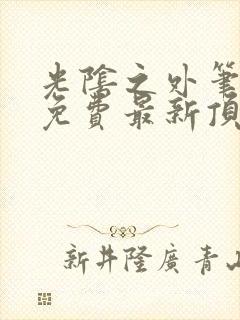 光陰之外筆
免費最新頂
新井隆廣青山